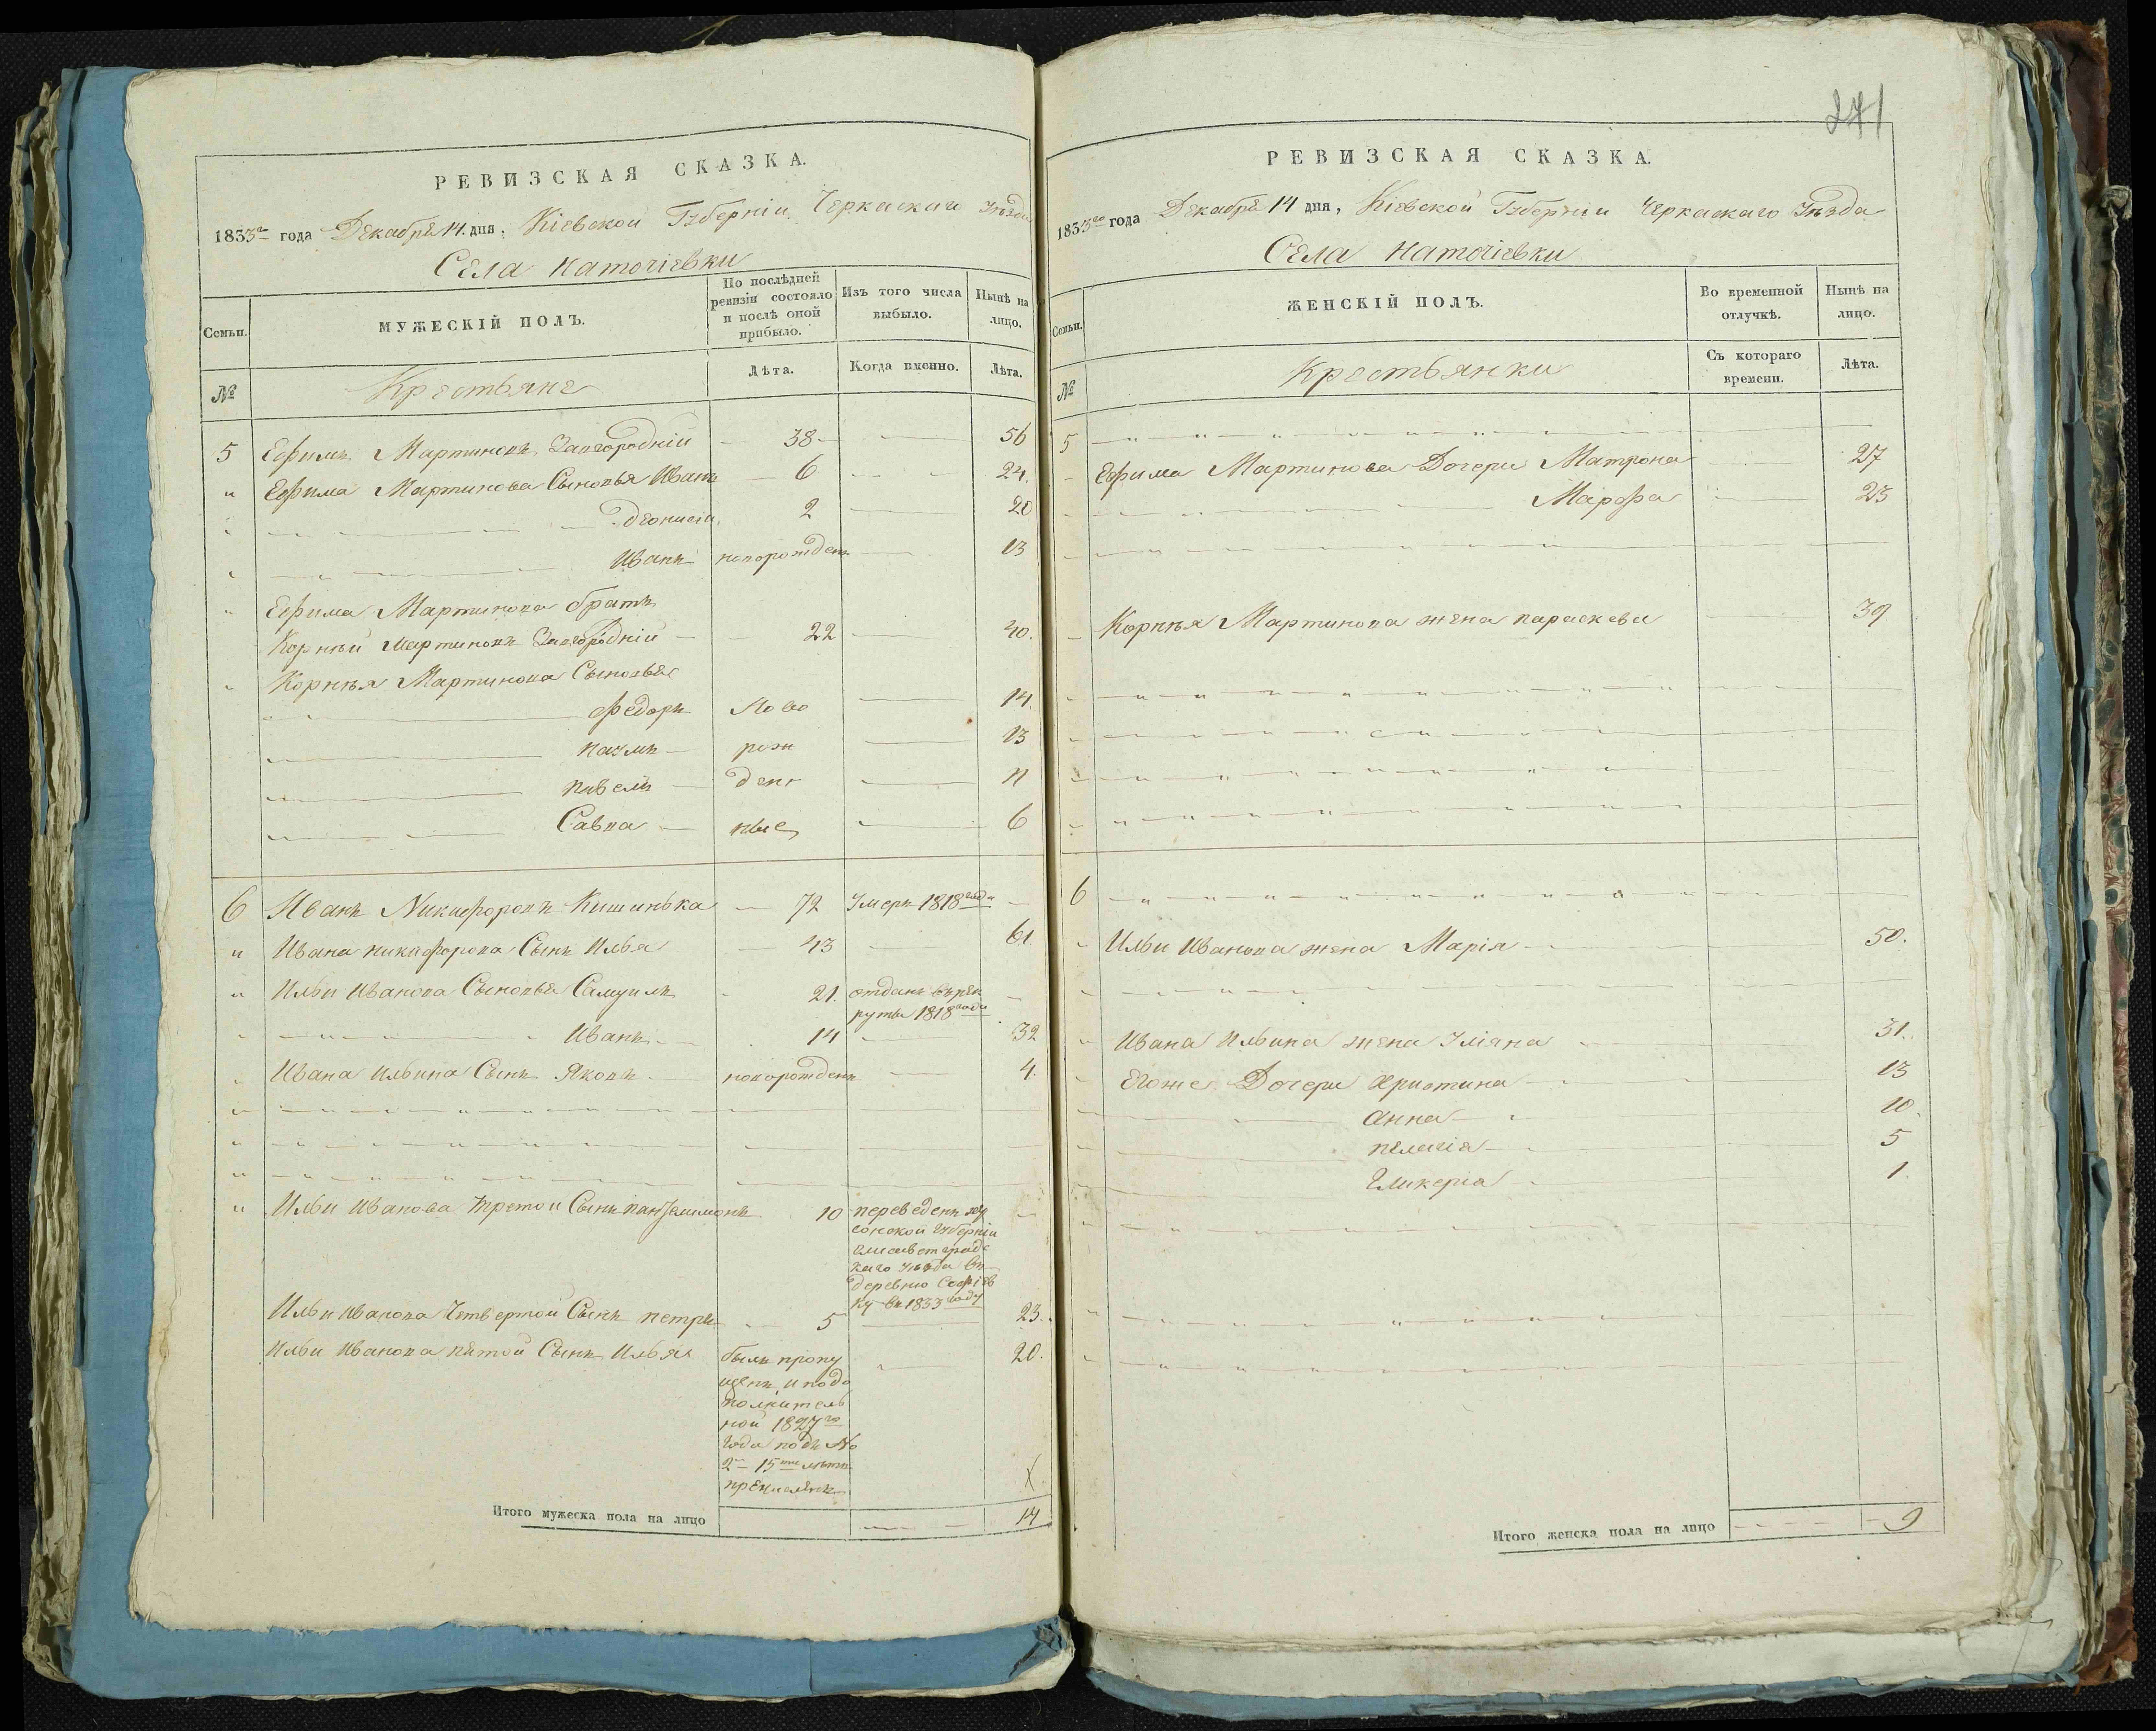 241
РЕВИЗСКАЯ СКАЗКА.
1833го года Декабря 14 дня, Кіевской Губерніи Черкаскаго Уезда
Села Маточіевки
Семьи.
МУЖЕСКІЙ ПОЛЪ.
По послѣдней ревизіи состояло и послѣ оной прибыло.
Изъ того числа выбыло.
Нынѣ на лицо.
№
Крестьяне
Лѣта.
Когда именно.
Лѣта.
5 Ефимъ Мартиновъ Завгородній 38 56
" Ефима Мартинова Сыновья Иванъ 6 24.
Деонисій 2 20
Иванъ новорожденъ 13
Ефима Мартинова братъ
Корнѣй Мартиновъ Завгородній 22 40.
Корнѣя Мартинова Сыновья
Федоръ Ново 14.
Наумъ рож 13
Павелъ ден 11
Савва ные 6
6 Иванъ Никифоровъ Кишинька 72 Умеръ 1818 года
" Ивана Никифорова Сынъ Илья 43 61
" Ильи Иванова Сыновья Самуилъ 21. отданъ въ рек
руты 1818 года
Иванъ 14 32
Ивана Ильина Сынъ Яковъ новорожденъ 4.
" Ильи Иванова третои Сынъ Пантелимонъ 10 переведенъ хер
сонской Губерніи
Елисаветград
каго Уезда въ
деревню Софіев
ку въ 1833 году
Ильи Иванова Четвертой Сынъ Петръ 5 23.
Ильи Иванова пятой Сынъ Илья былъ пропу 20.
щенъ и по до
полнитель
ной 1827го
года подъ №
2м 15ти летъ
причисленъ
X
Итого мужеска пола на лицо 14
РЕВИЗСКАЯ СКАЗКА.
1833го года Декабря 14 дня, Кіевской Губерніи Черкаскаго Уезда
Села Маточіевки
Семьи.
ЖЕНСКІЙ ПОЛЪ.
Во временной отлучкѣ.
Нынѣ на лицо.
№
Крестьянки
Съ котораго времени.
Лѣта.
5
Ефима Мартинова Дочери Матрона 27
Марфа 23
Корнѣя Мартинова жена параскева 39
6
Ильи Иванова жена Марія 50.
Ивана Ильина жена Уліяна 31.
Егоже Дочери Христина 13
Анна 10.
Пелагія 5
Гликерія 1.
Итого женска пола на лицо 9